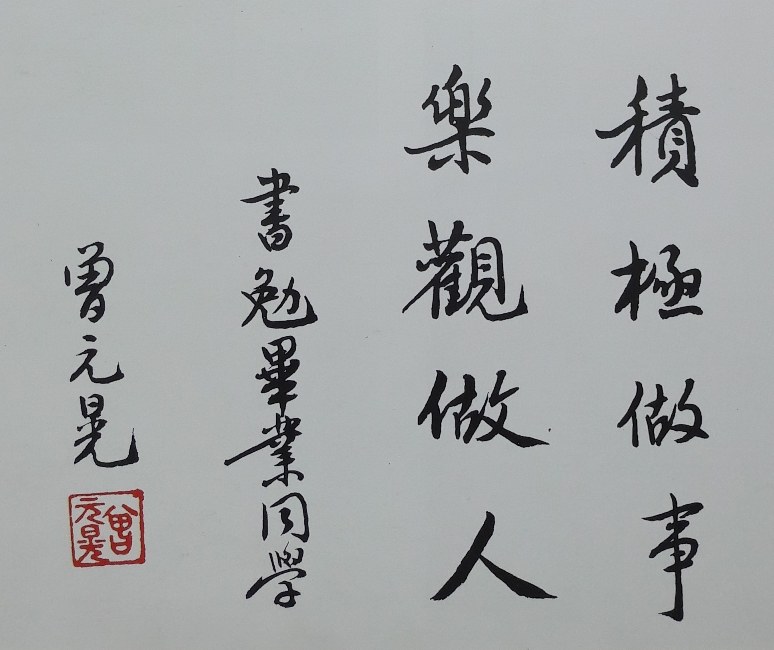 積極做事
樂觀做人
書勉畢業同學
曾元晃
曾元晃